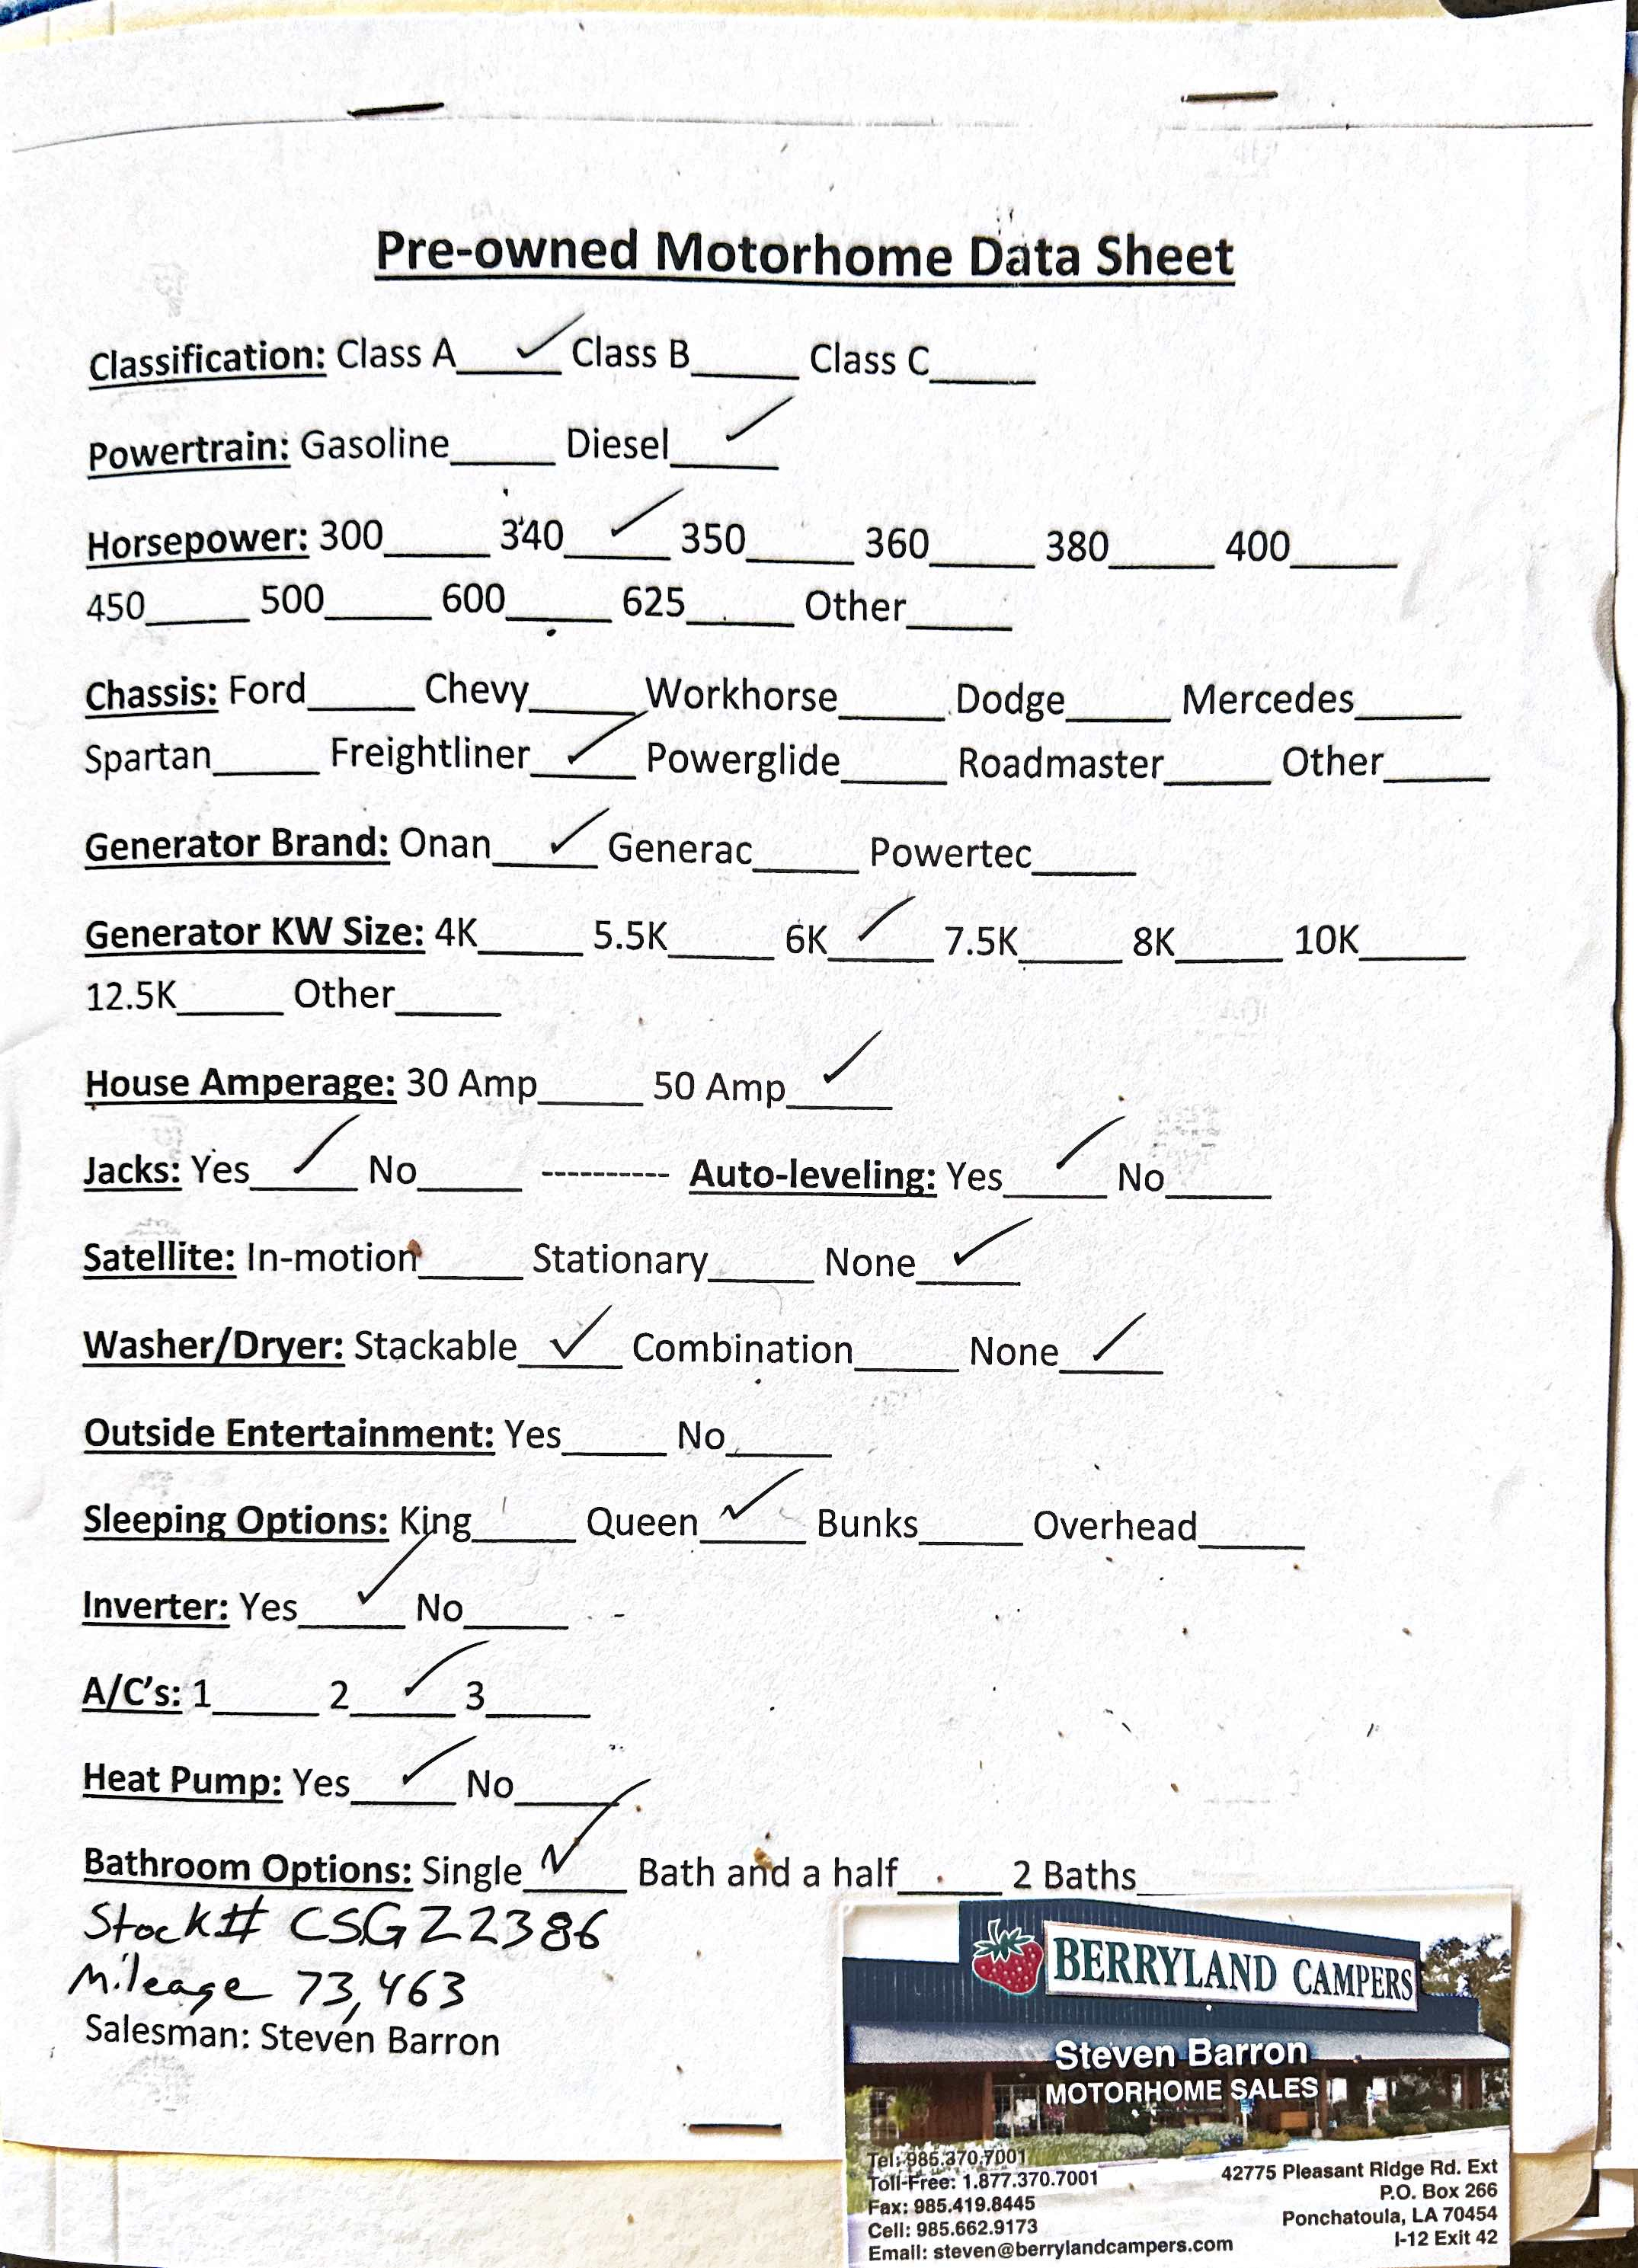 Pre-owned Motorhome Data Sheet
Classification: Class A ✓ Class B_____ Class C_____
Powertrain: Gasoline_____ Diesel ✓
Horsepower: 300_____ 340 ✓ 350_____ 360_____ 380_____ 400_____
450_____ 500_____ 600_____ 625_____ Other_____
Chassis: Ford_____ Chevy_____ Workhorse_____ Dodge_____ Mercedes_____
Spartan_____ Freightliner ✓ Powerglide_____ Roadmaster_____ Other_____
Generator Brand: Onan ✓ Generac_____ Powertec_____
Generator KW Size: 4K_____ 5.5K_____ 6K ✓ 7.5K_____ 8K_____ 10K_____
12.5K_____ Other_____
House Amperage: 30 Amp_____ 50 Amp ✓
Jacks: Yes ✓ No_____ ---------- Auto-leveling: Yes ✓ No_____
Satellite: In-motion_____ Stationary_____ None ✓
Washer/Dryer: Stackable ✓ Combination_____ None ✓
Outside Entertainment: Yes_____ No_____
Sleeping Options: King_____ Queen ✓ Bunks_____ Overhead_____
Inverter: Yes ✓ No_____
A/C's: 1_____ 2 ✓ 3_____
Heat Pump: Yes ✓ No_____
Bathroom Options: Single ✓ Bath and a half_____ 2 Baths_____
Stock# CSGZ2386
Mileage 73,463
Salesman: Steven Barron
BERRYLAND CAMPERS
Steven Barron
MOTORHOME SALES
Tel: 985.370.7001
Toll-Free: 1.877.370.7001
Fax: 985.419.8445
Cell: 985.662.9173
Email: steven@berrylandcampers.com
42775 Pleasant Ridge Rd. Ext
P.O. Box 266
Ponchatoula, LA 70454
I-12 Exit 42